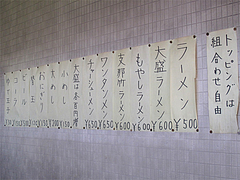 トッピングは
組合わせ自由
ラーメン ¥500
大盛ラーメン ¥600
もやしラーメン ¥600
支那竹ラーメン ¥600
ワンタンメン ¥650
チャーシューメン ¥650
大盛は各百円増
小めし
大めし
おにぎり
ビール
コーラ
ゆで玉子